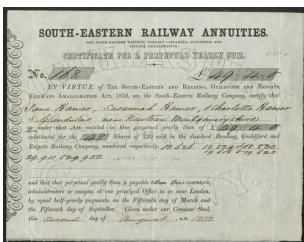 SOUTH-EASTERN RAILWAY ANNUITIES.
THE SOUTH-EASTERN RAILWAY COMPANY.—READING, GUILDFORD AND
REIGATE AMALGAMATION.
CERTIFICATE FOR A PERPETUAL YEARLY SUM.
No. 168 £49.4.0
BY VIRTUE of THE SOUTH-EASTERN AND READING, GUILDFORD AND REIGATE
RAILWAYS AMALGAMATION ACT, 1852, we, the South-Eastern Railway Company, certify that
Jane Hamer, Susannah Hamer & Charlotte Hamer
of Glandulas near Newtown Montgomeryshire
are under that Act entitled to One perpetual Yearly Sum of £49.4.0
substituted for the Shares of £20 each in the dissolved Reading, Guildford and
Reigate Railway Company, numbered respectively,
and that such perpetual Yearly Sum is payable to executors,
administrators or assigns, at our principal Office in or near London,
by equal half-yearly payments, on the Fifteenth day of March and
the Fifteenth day of September. Given under our Common Seal,
this Second day of August A.D. 1852